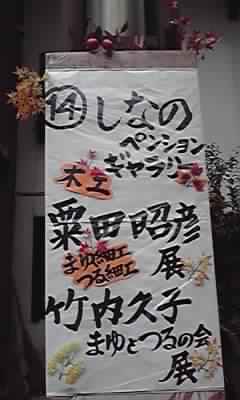 ⑭しなの
ペンション
ギャラリー
木工
粟田昭彦
展
まゆ細工
つる細工
竹内久子
まゆとつるの会
展